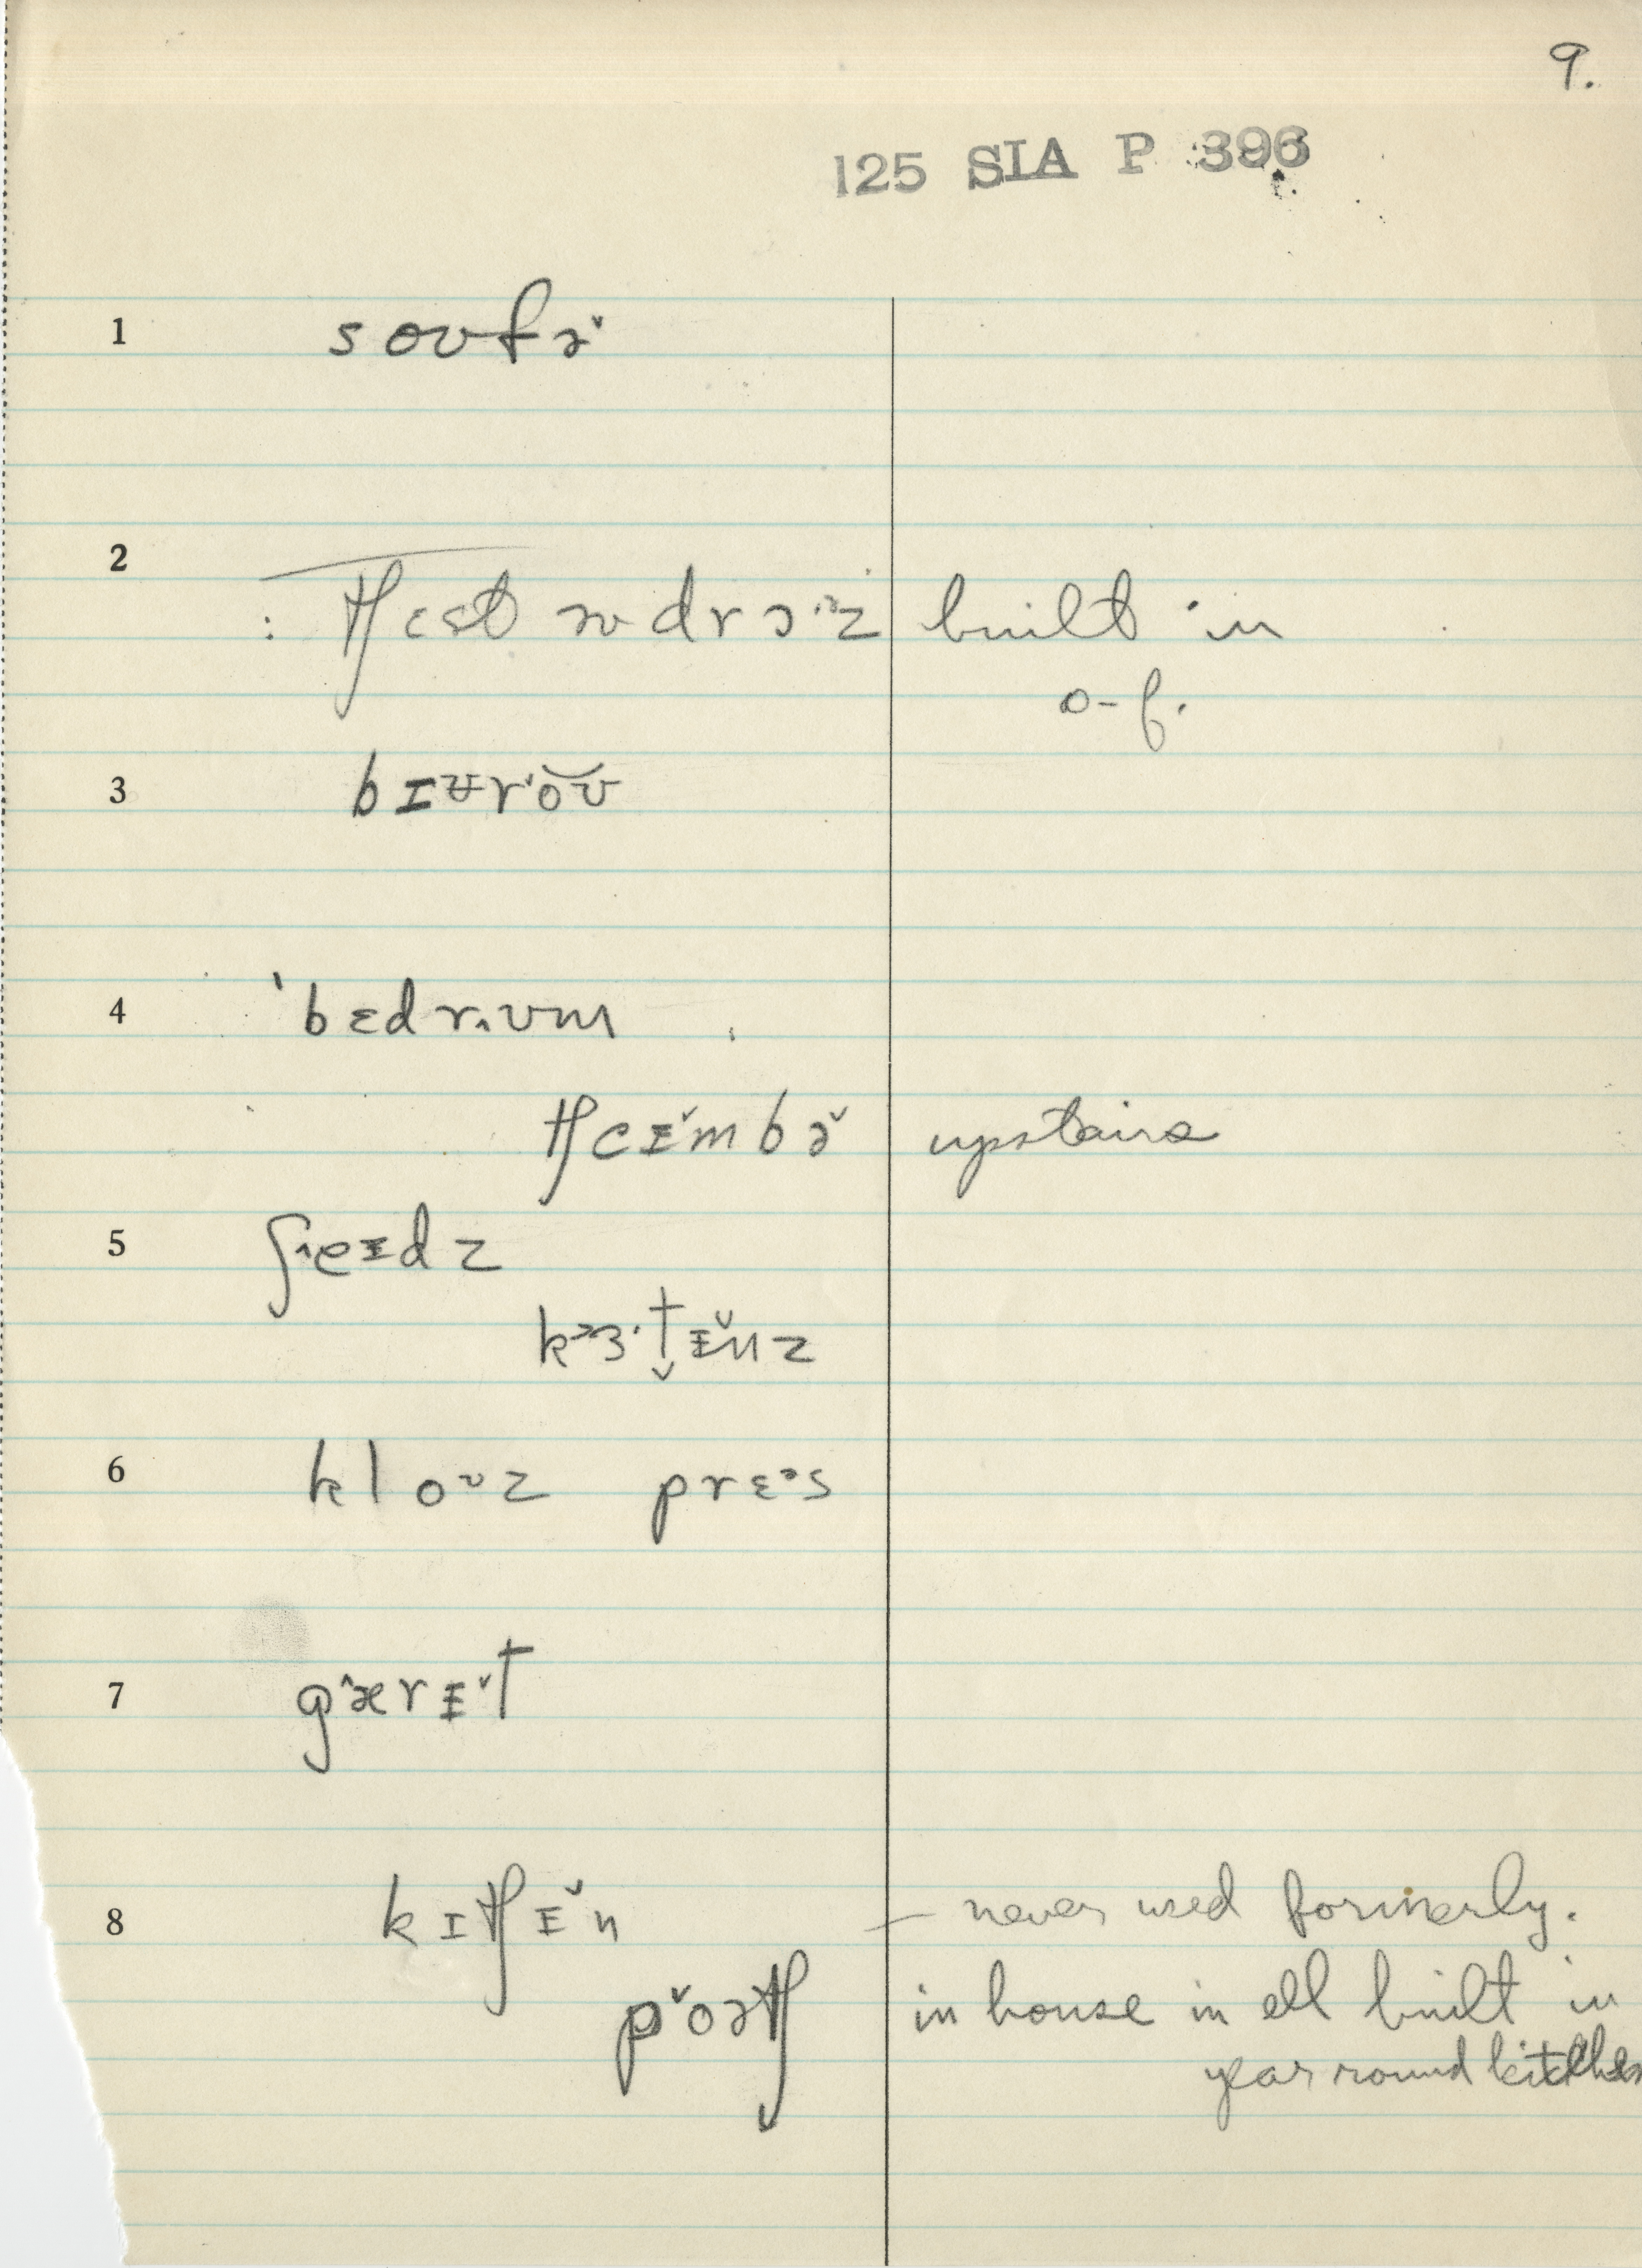 9.
125 SIA P 396
1 soʊfə˅
2
: tʃɛst əv drɔ·ᵊz built in
o-f.
3 bɪʉr˅oʊ
4 ˈbɛdrʌʊm
tʃeɪ˅mbə˅ upstairs
5 ʃʌeɪdz
kᵊɜ·tɪ˅nz
6 kloᶷz prɛᵊs
7 gæ^rɪ˅t
8 kɪtʃɪ˅n — never used formerly.
p˅oətʃ in house in ell built in
year round kitchen